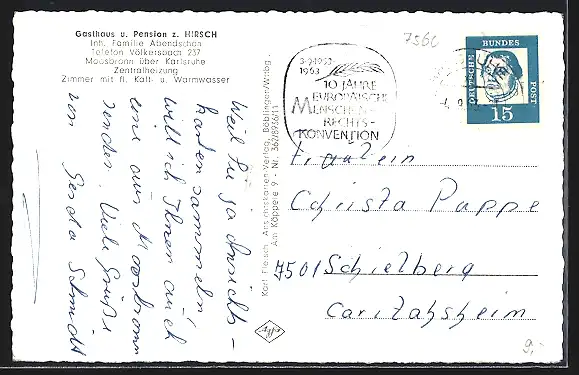 Gasthaus u. Pension z. HIRSCH
Inh. Familie Abendschön
Telefon Völkersbach 237
Moosbronn über Karlsruhe
Zentralheizung
Zimmer mit fl. Kalt- u. Warmwasser
Weil Sie ja Ansichts-
karten sammeln,
will ich Ihnen auch
eine aus Moosbronn
senden. Viele Grüße
von Gerda Schmidt
Karl Fleisch, Ansichtskarten-Verlag, Böblingen/Württbg.
Am Käppele 9 - Nr.
7566
3-9-1953
1963
10 JAHRE
EUROPÄISCHE
MENSCHEN-
RECHTS-
KONVENTION
DEUTSCHE
BUNDES
POST
15
Fräulein
Christa Pappe
7501 Schielberg
Carlzahsheim
9,-